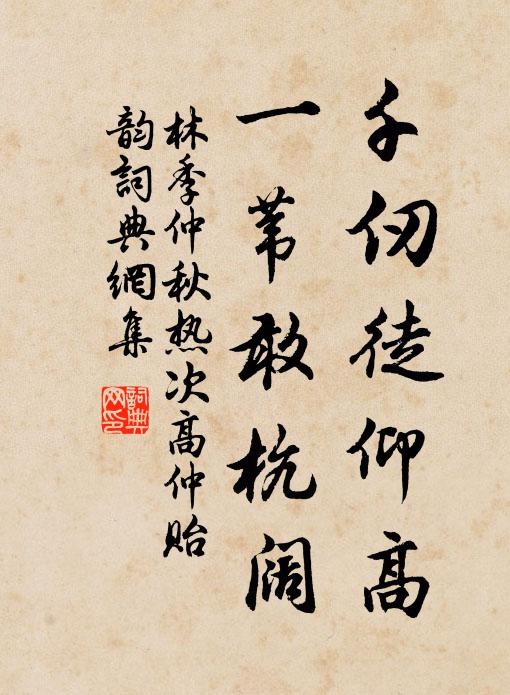 千仞徒仰高
一苇敢杭阔
林季仲秋热次高仲贻
韵詞典網集
詞典
网印